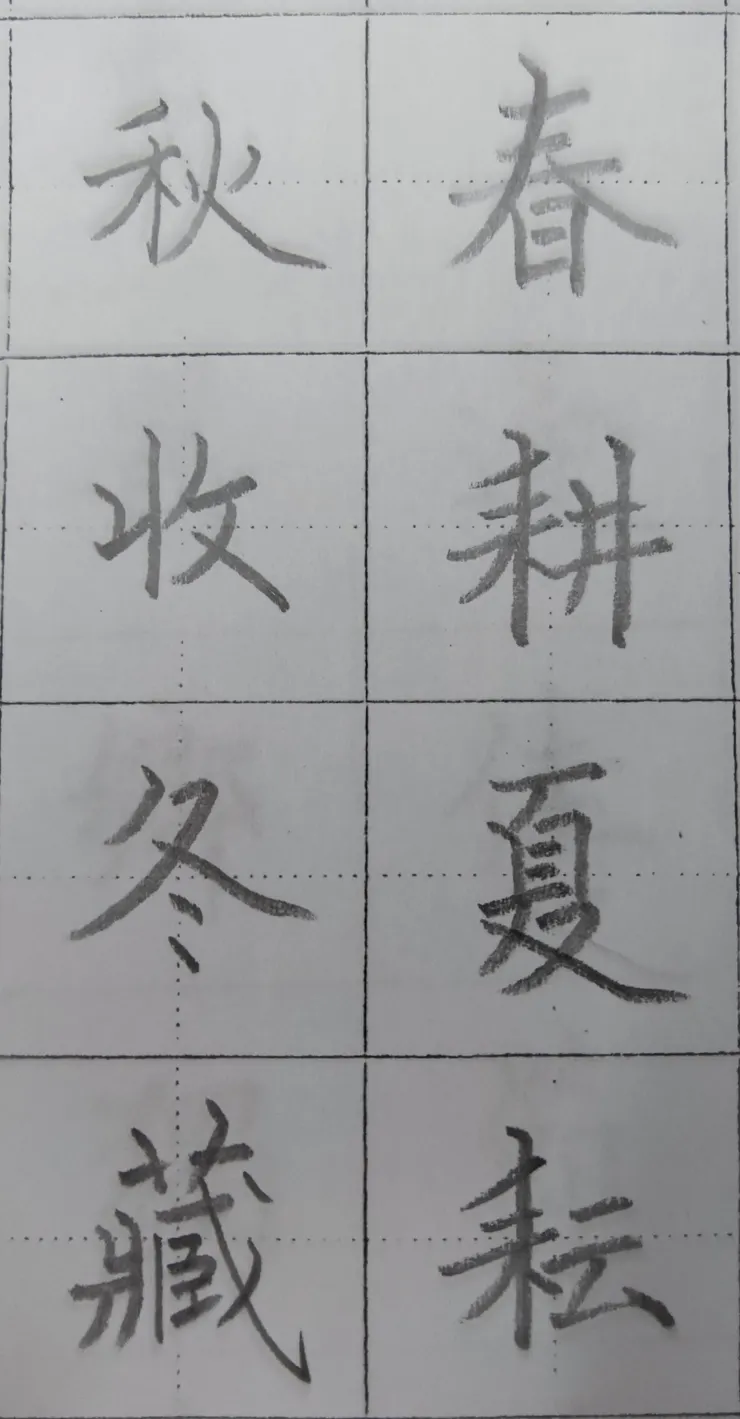 春耕夏耘
秋收冬藏